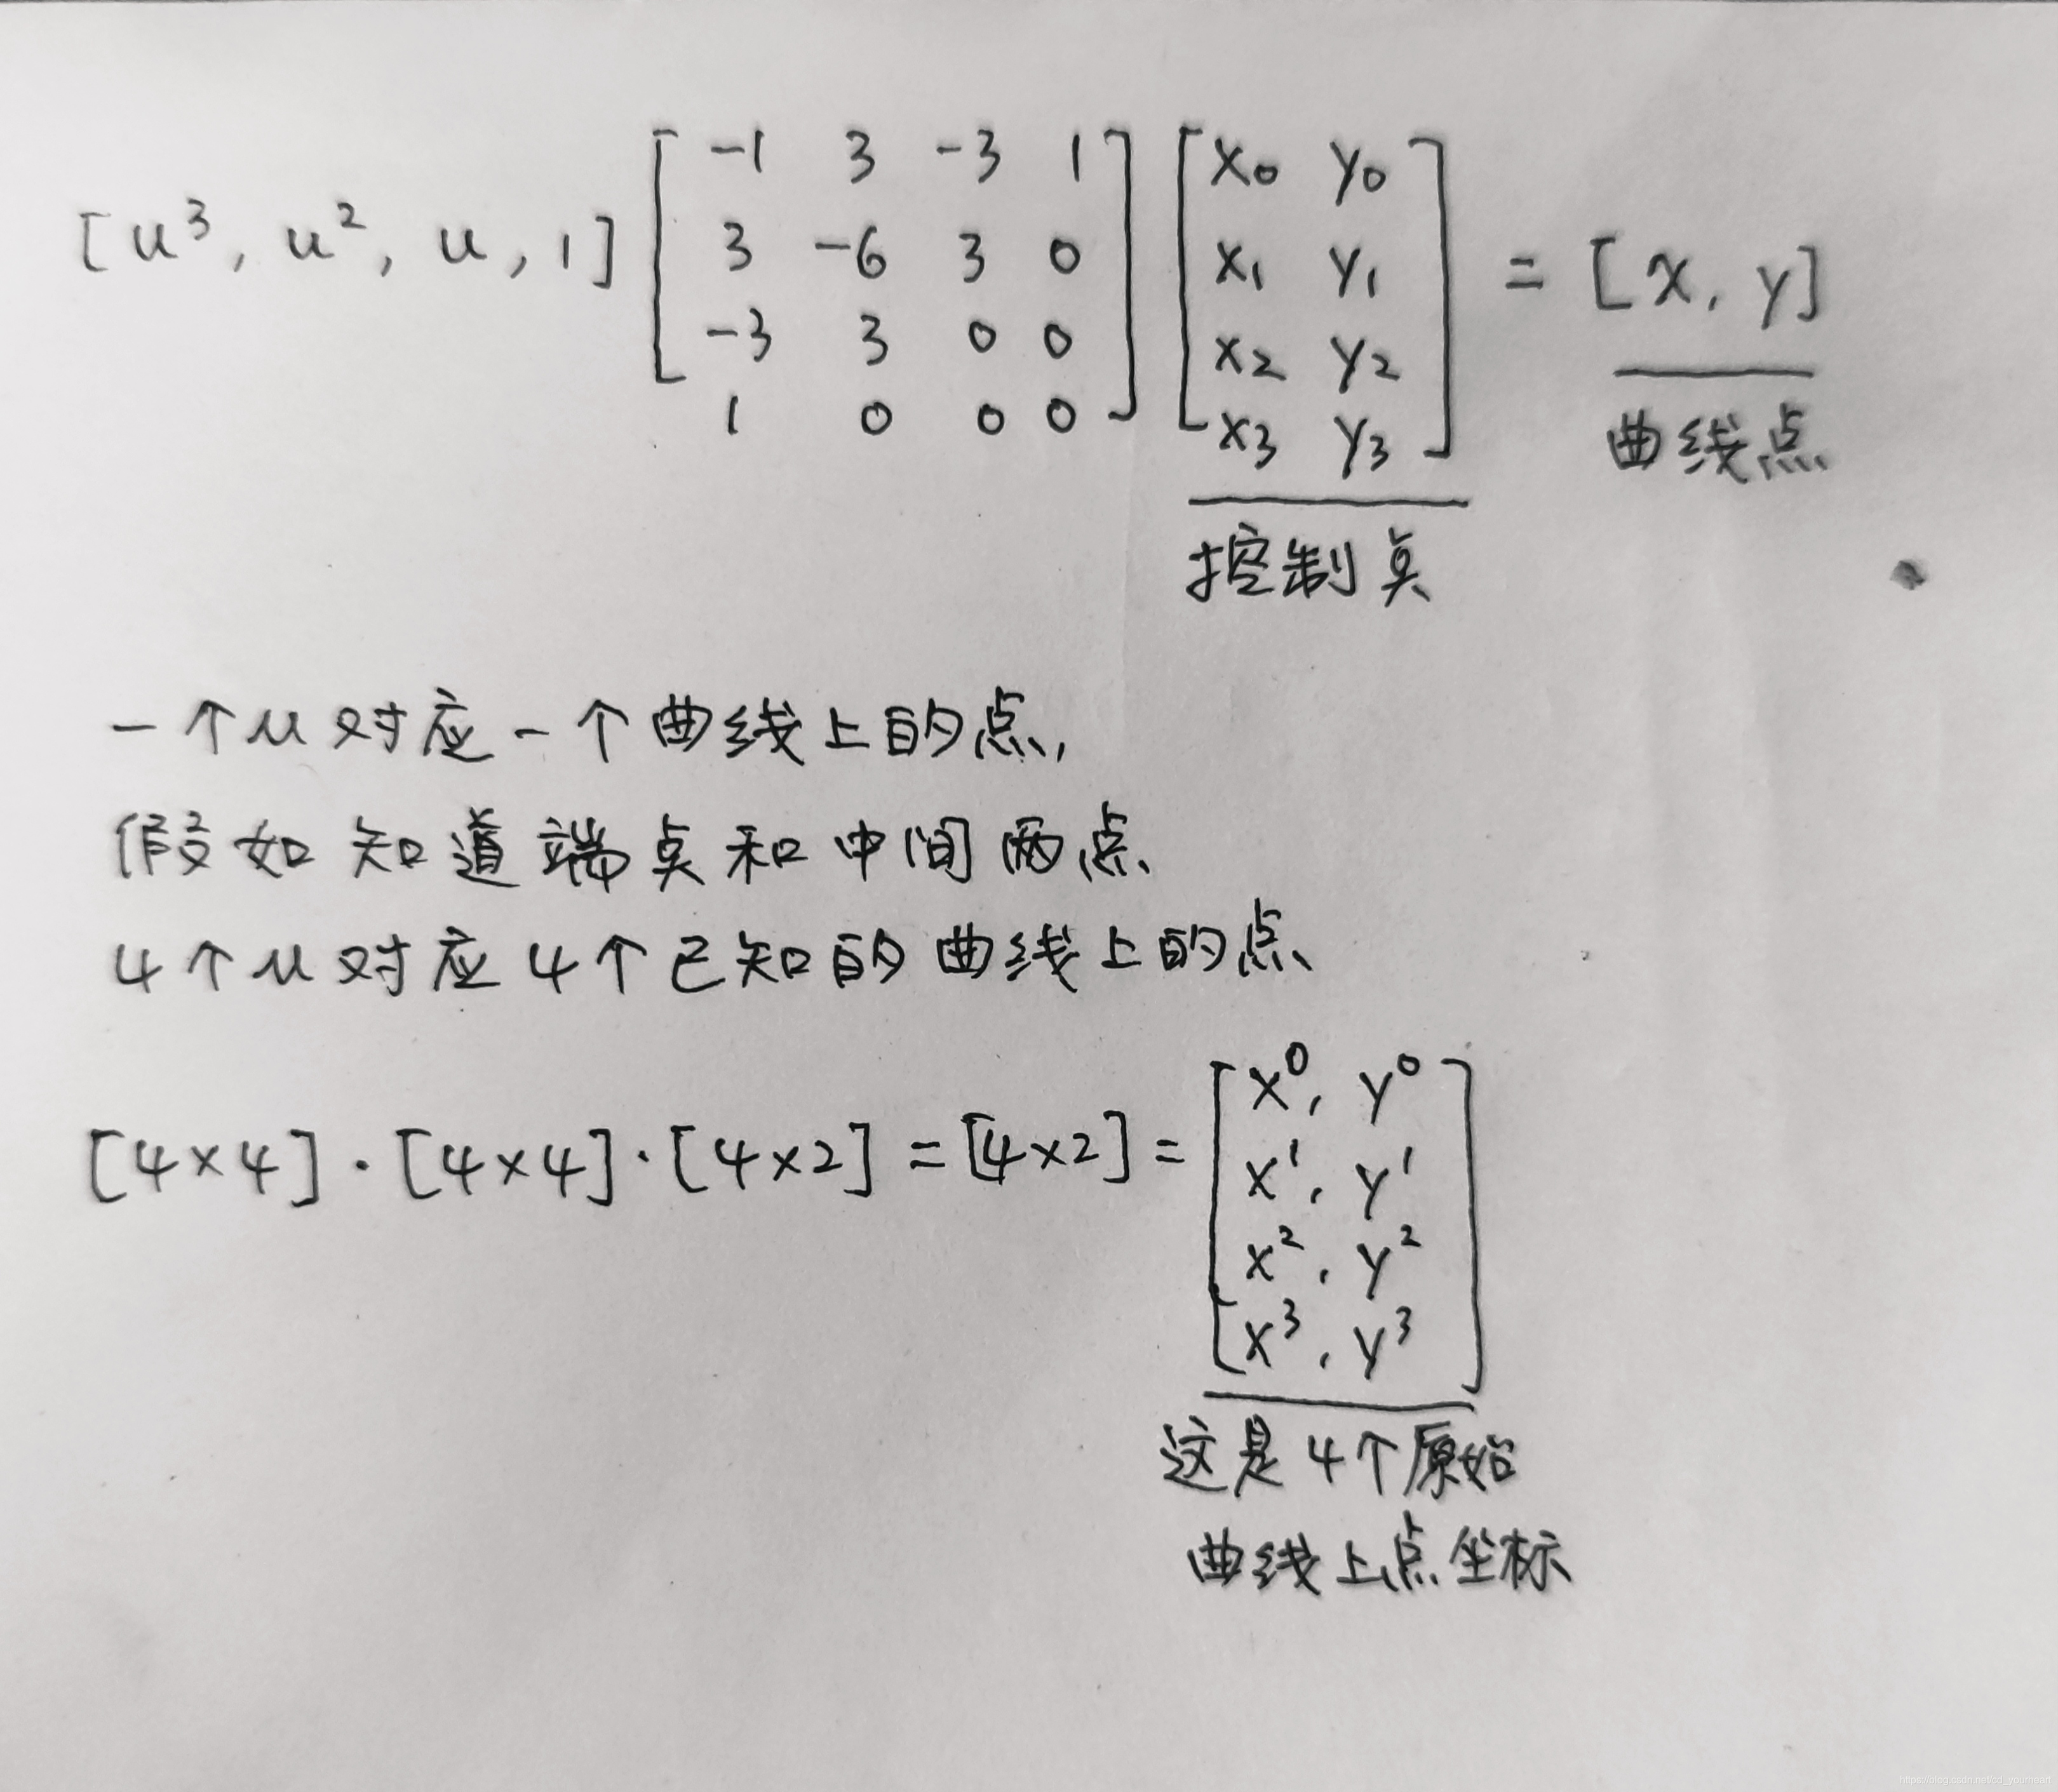 [u³, u², u, 1] [-1 3 -3 1 [x₀ y₀
3 -6 3 0 x₁ y₁ = [x, y]
-3 3 0 0 x₂ y₂
1 0 0 0] x₃ y₃]
曲线点
控制点
一个u对应一个曲线上的点,
假如知道端点和中间两点
4个u对应4个已知的曲线上的点
[4×4]·[4×4]·[4×2] = [4×2] = [x⁰, y⁰
x¹, y¹
x², y²
x³, y³]
这是4个原始
曲线上点坐标
https://blog.csdn.net/cd_yourheart